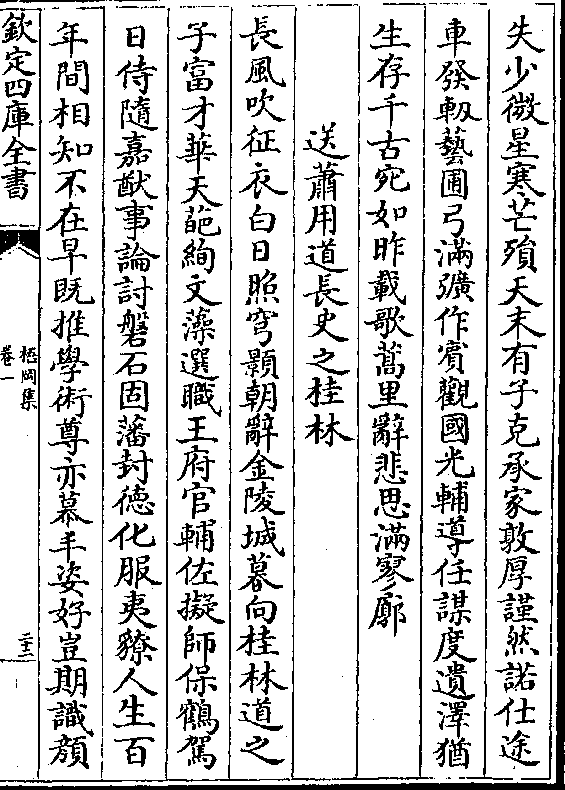 失少微星寒芒殞天末有子克承家敦厚謹然諾仕途
車發軔藝圃弓滿彍作賔觀國光輔導任謀度遺澤猶
生存千古宛如昨載歌蒿里辭悲思滿寥廓
送蕭用道長史之桂林
長風吹征衣白日照穹顥朝辭金陵城暮向桂林道之
子富才華天葩絢文藻選職王府官輔佐擬師保鶴駕
日侍隨嘉猷事論討磐石固藩封德化服夷獠人生百
年間相知不在早既推學術尊亦慕丰姿好豈期識顔
欽定四庫全書
梧岡集
卷一
二十二